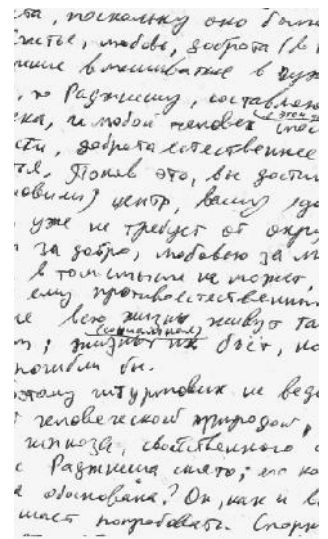 та, поскольку оно было
счастье, любовь, доброта (в
вмешивание в
, по Раджнишу, составляю
ека, и любой человек
сти, доброта естественнее
тся. Поняв это, вы дости
новили) центр, вашу
уже не требует от окру
за добро, любовью за лю
в том смысле не может,
ему противоестественны
не всю жизнь живут та
(социальном)
; жизнь их бьёт, но
погибли бы.
этому штурмовик не веда
человеческой природой,
гипноза, свойственного
с Раджниша снято; его
обоснована? Он, как и в
шает попробовать. Спорн